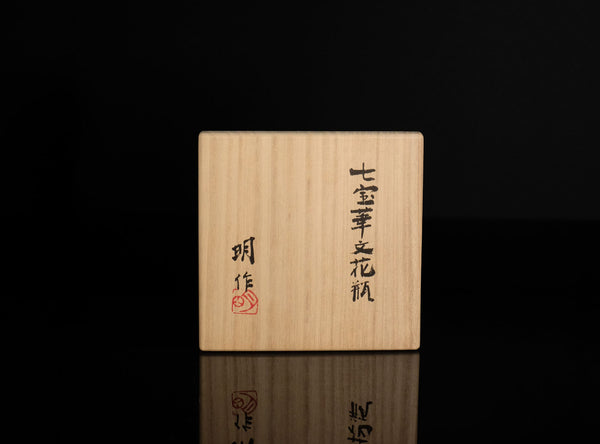 七宝華文花瓶
明作